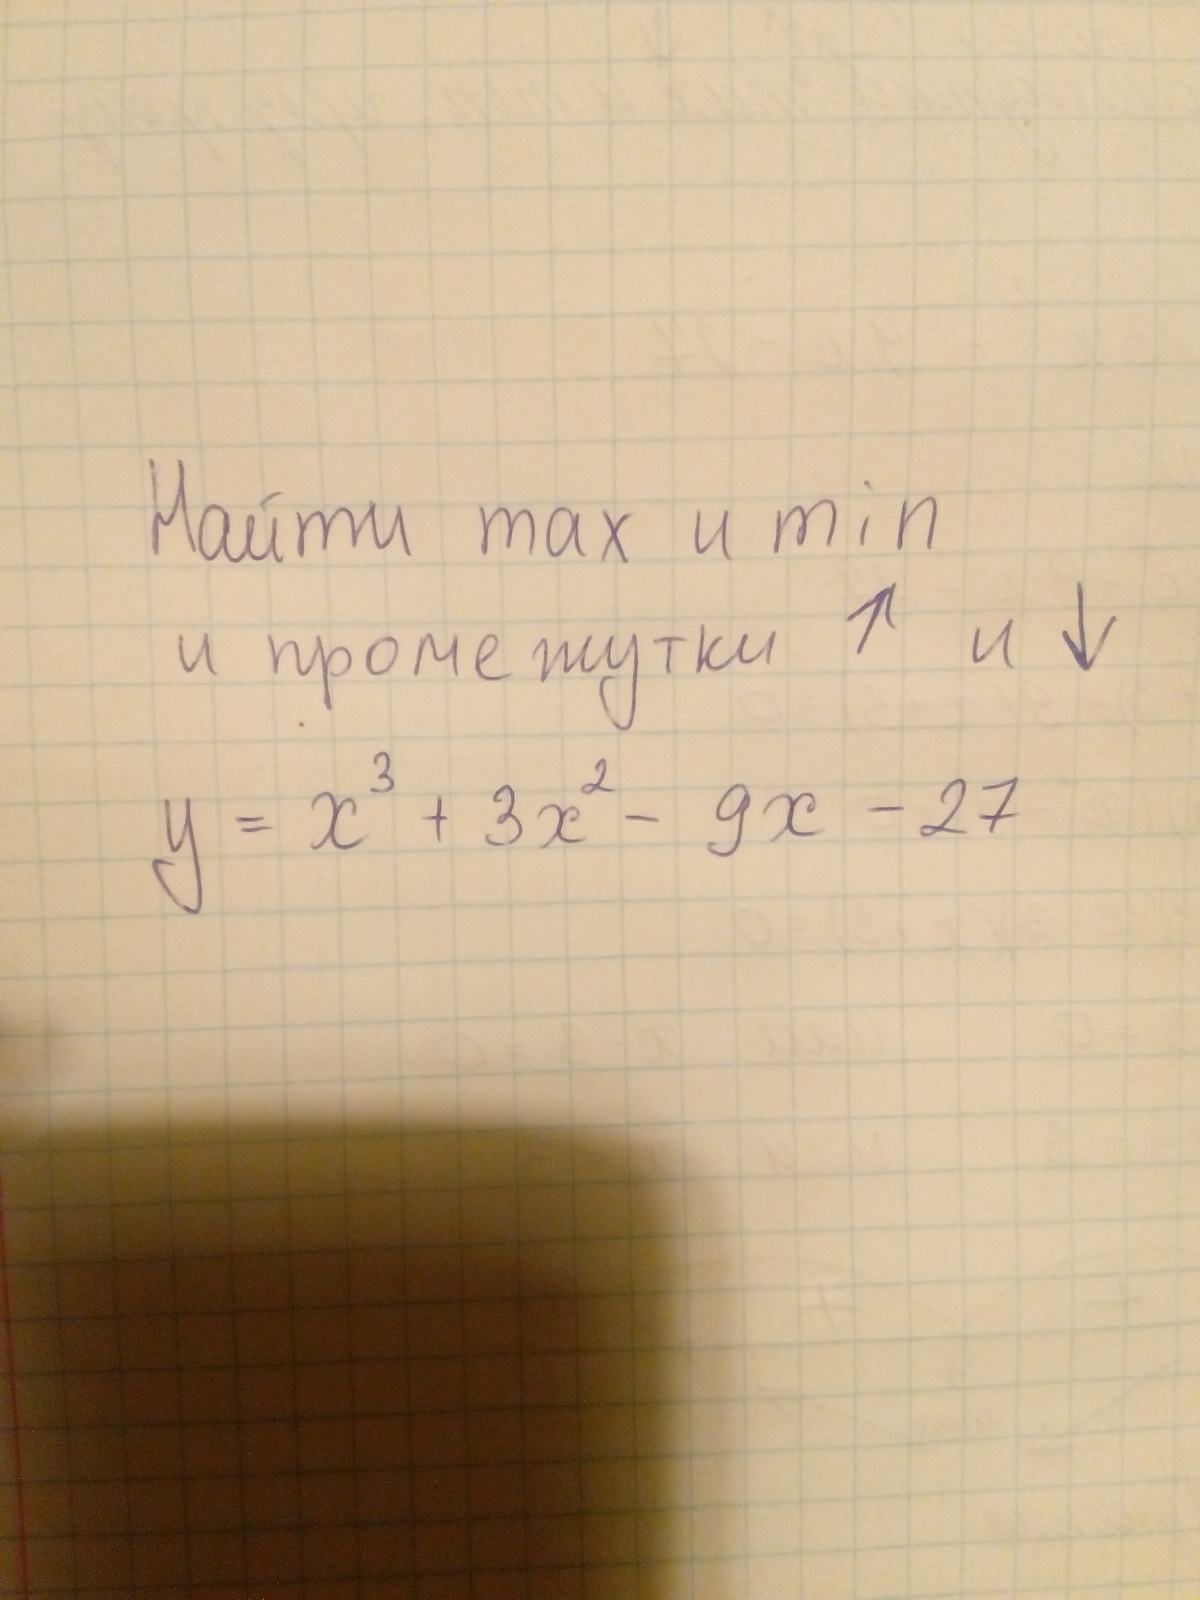 Найти max и min
и промежутки ↑ и ↓
y = x³ + 3x² - 9x - 27